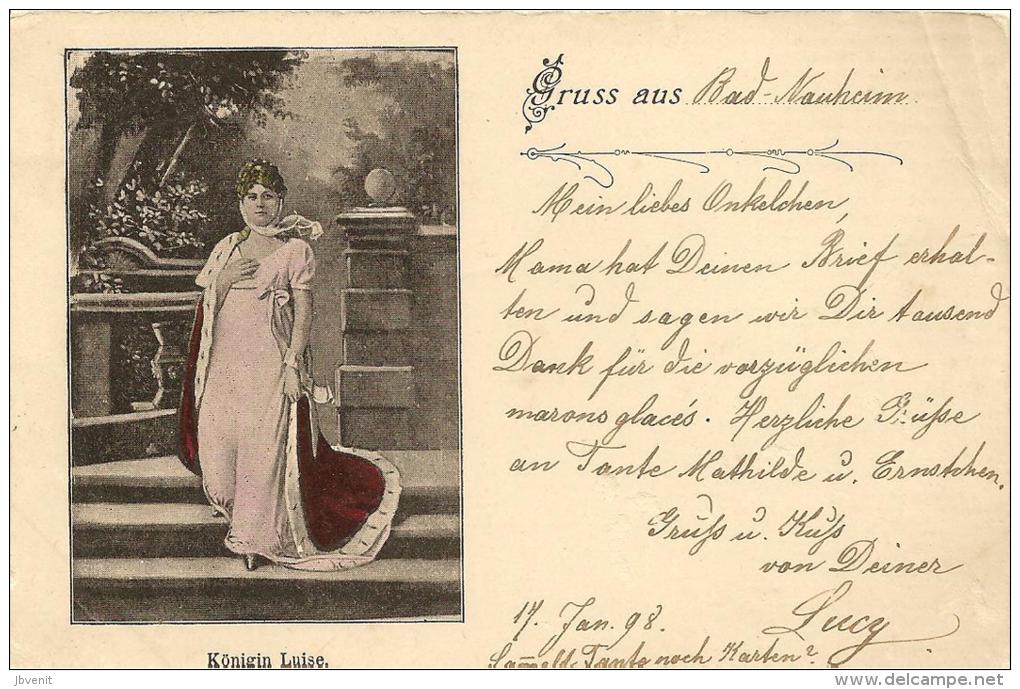 Gruss aus Bad-Nauheim
Mein liebes Onkelchen,
Mama hat Deinen Brief erhal-
ten und sagen wir Dir tausend
Dank für die vorzüglichen
marons glacés. Herzliche Grüße
an Tante Mathilde u. Ernstchen.
Gruß u. Kuß
von Deiner
Lucy
17. Jan. 98.
Sam̅elt Tante noch Karten?
Königin Luise.
jbvenit
delcampe.net